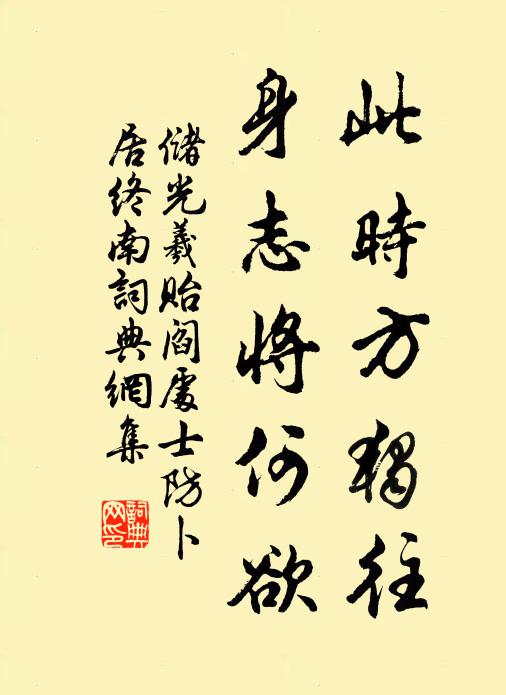 此時方獨往
身志將何欲
儲光羲貽閻處士防卜
居終南詞典網集
詞典
网印